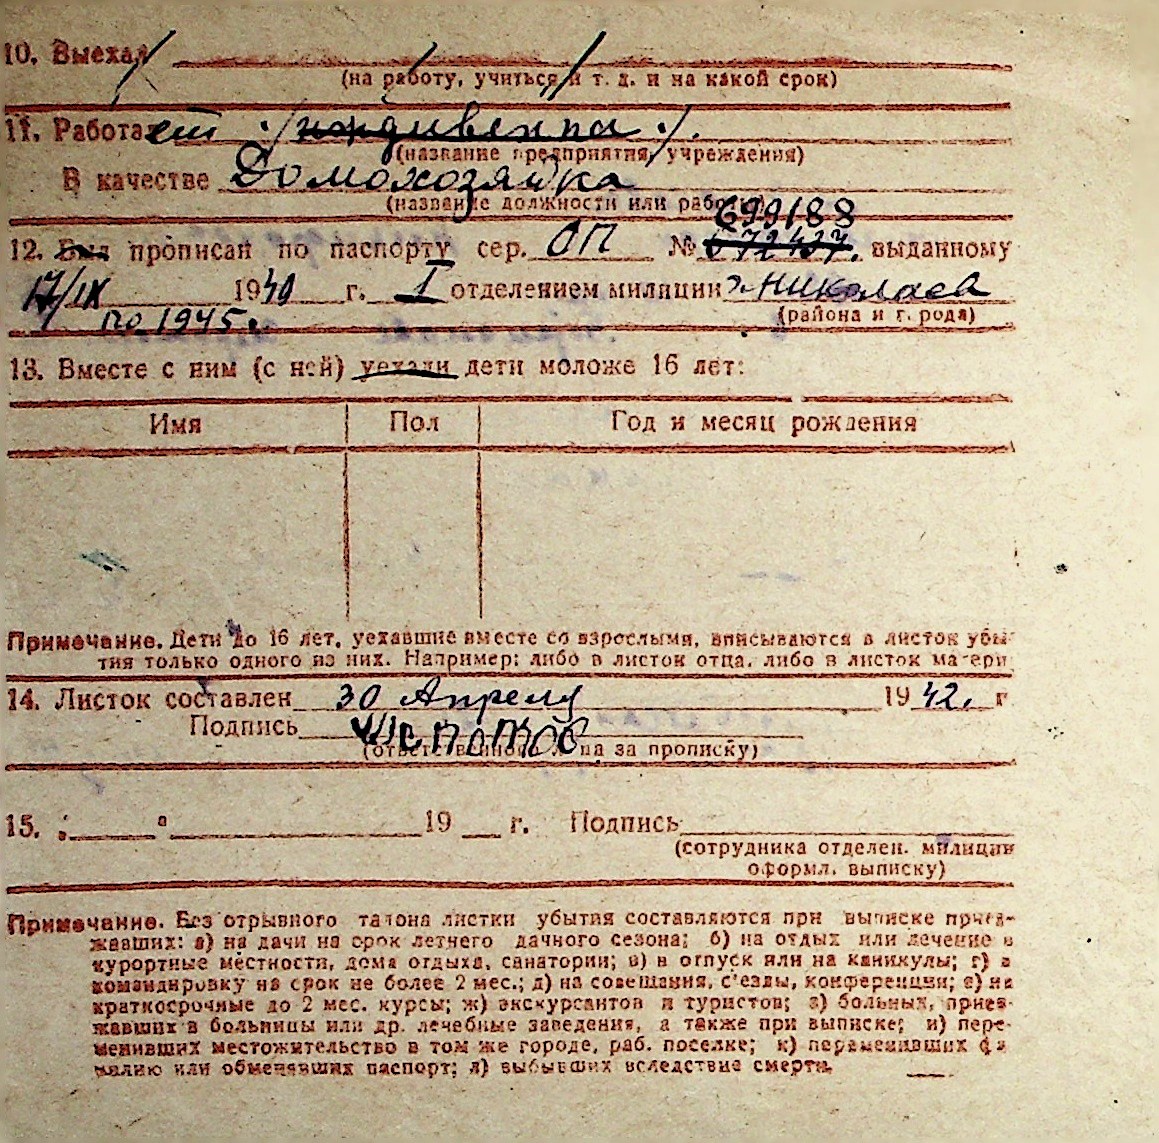 10. Выехал
(на работу, учиться и т. д. и на какой срок)
11. Работает ./иждивенка/.
(название предприятия, учреждения)
В качестве Домохозяйка
(название должности или работы)
699188
12. Был прописан по паспорту сер. ОП № 672437. выданному
17/IX 1940 г. I отделением милиции г. Николаев
по 1945. (района и г. рода)
13. Вместе с ним (с ней) уехали дети моложе 16 лет:
Имя Пол Год и месяц рождения
Примечание. Дети до 16 лет, уехавшие вместе со взрослыми, вписываются в листок убы-
тия только одного из них. Например: либо в листок отца, либо в листок матери
14. Листок составлен 30 Апреля 1942. г
Подпись
(ответственного лица за прописку)
15. „ " 19 г. Подпись
(сотрудника отделен. милиции
оформл. выписку)
Примечание. Без отрывного талона листки убытия составляются при выписке приез-
жавших: а) на дачи на срок летнего дачного сезона; б) на отдых или лечение в
курортные местности, дома отдыха, санатории; в) в отпуск или на каникулы; г) в
командировку на срок не более 2 мес.; д) на совещания, с'езды, конференции; е) на
краткосрочные до 2 мес. курсы; ж) экскурсантов и туристов; з) больных, приез-
жавших в больницы или др. лечебные заведения, а также при выписке; и) пере-
менивших местожительство в том же городе, раб. поселке; к) переменивших фа
милию или обменявших паспорт; л) выбывших вследствие смерти.